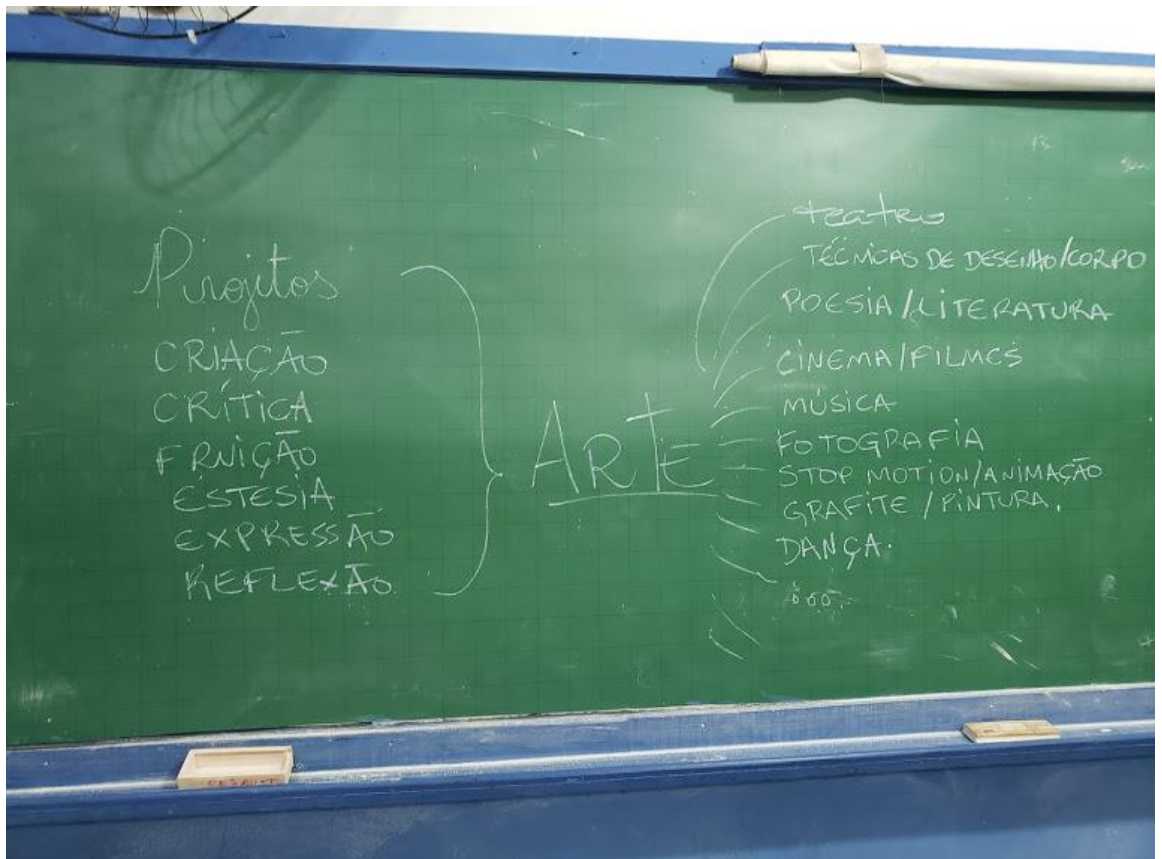 Projetos
CRIAÇÃO
CRÍTICA
FRUIÇÃO
ESTESIA
EXPRESSÃO
REFLEXÃO
ARTE
teatro
TÉCNICAS DE DESENHO/CORPO
POESIA/LITERATURA
CINEMA/FILMES
MÚSICA
FOTOGRAFIA
STOP MOTION/ANIMAÇÃO
GRAFITE/PINTURA.
DANÇA.
...